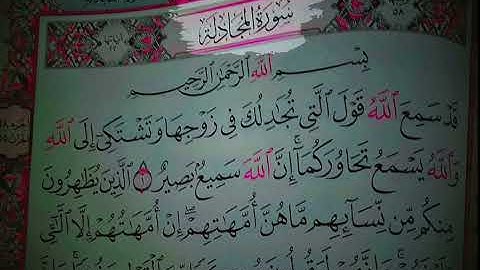 سُورَةُ المُجَادلَةِ
بِسْمِ اللَّهِ الرَّحْمَٰنِ الرَّحِيمِ
قَدْ سَمِعَ اللَّهُ قَوْلَ الَّتِي تُجَادِلُكَ فِي زَوْجِهَا وَتَشْتَكِي إِلَى اللَّهِ
وَاللَّهُ يَسْمَعُ تَحَاوُرَكُمَا إِنَّ اللَّهَ سَمِيعٌ بَصِيرٌ ١ الَّذِينَ يُظَاهِرُونَ
مِنكُم مِّن نِّسَائِهِم مَّا هُنَّ أُمَّهَاتِهِمْ إِنْ أُمَّهَاتُهُمْ إِلَّا الَّائِي